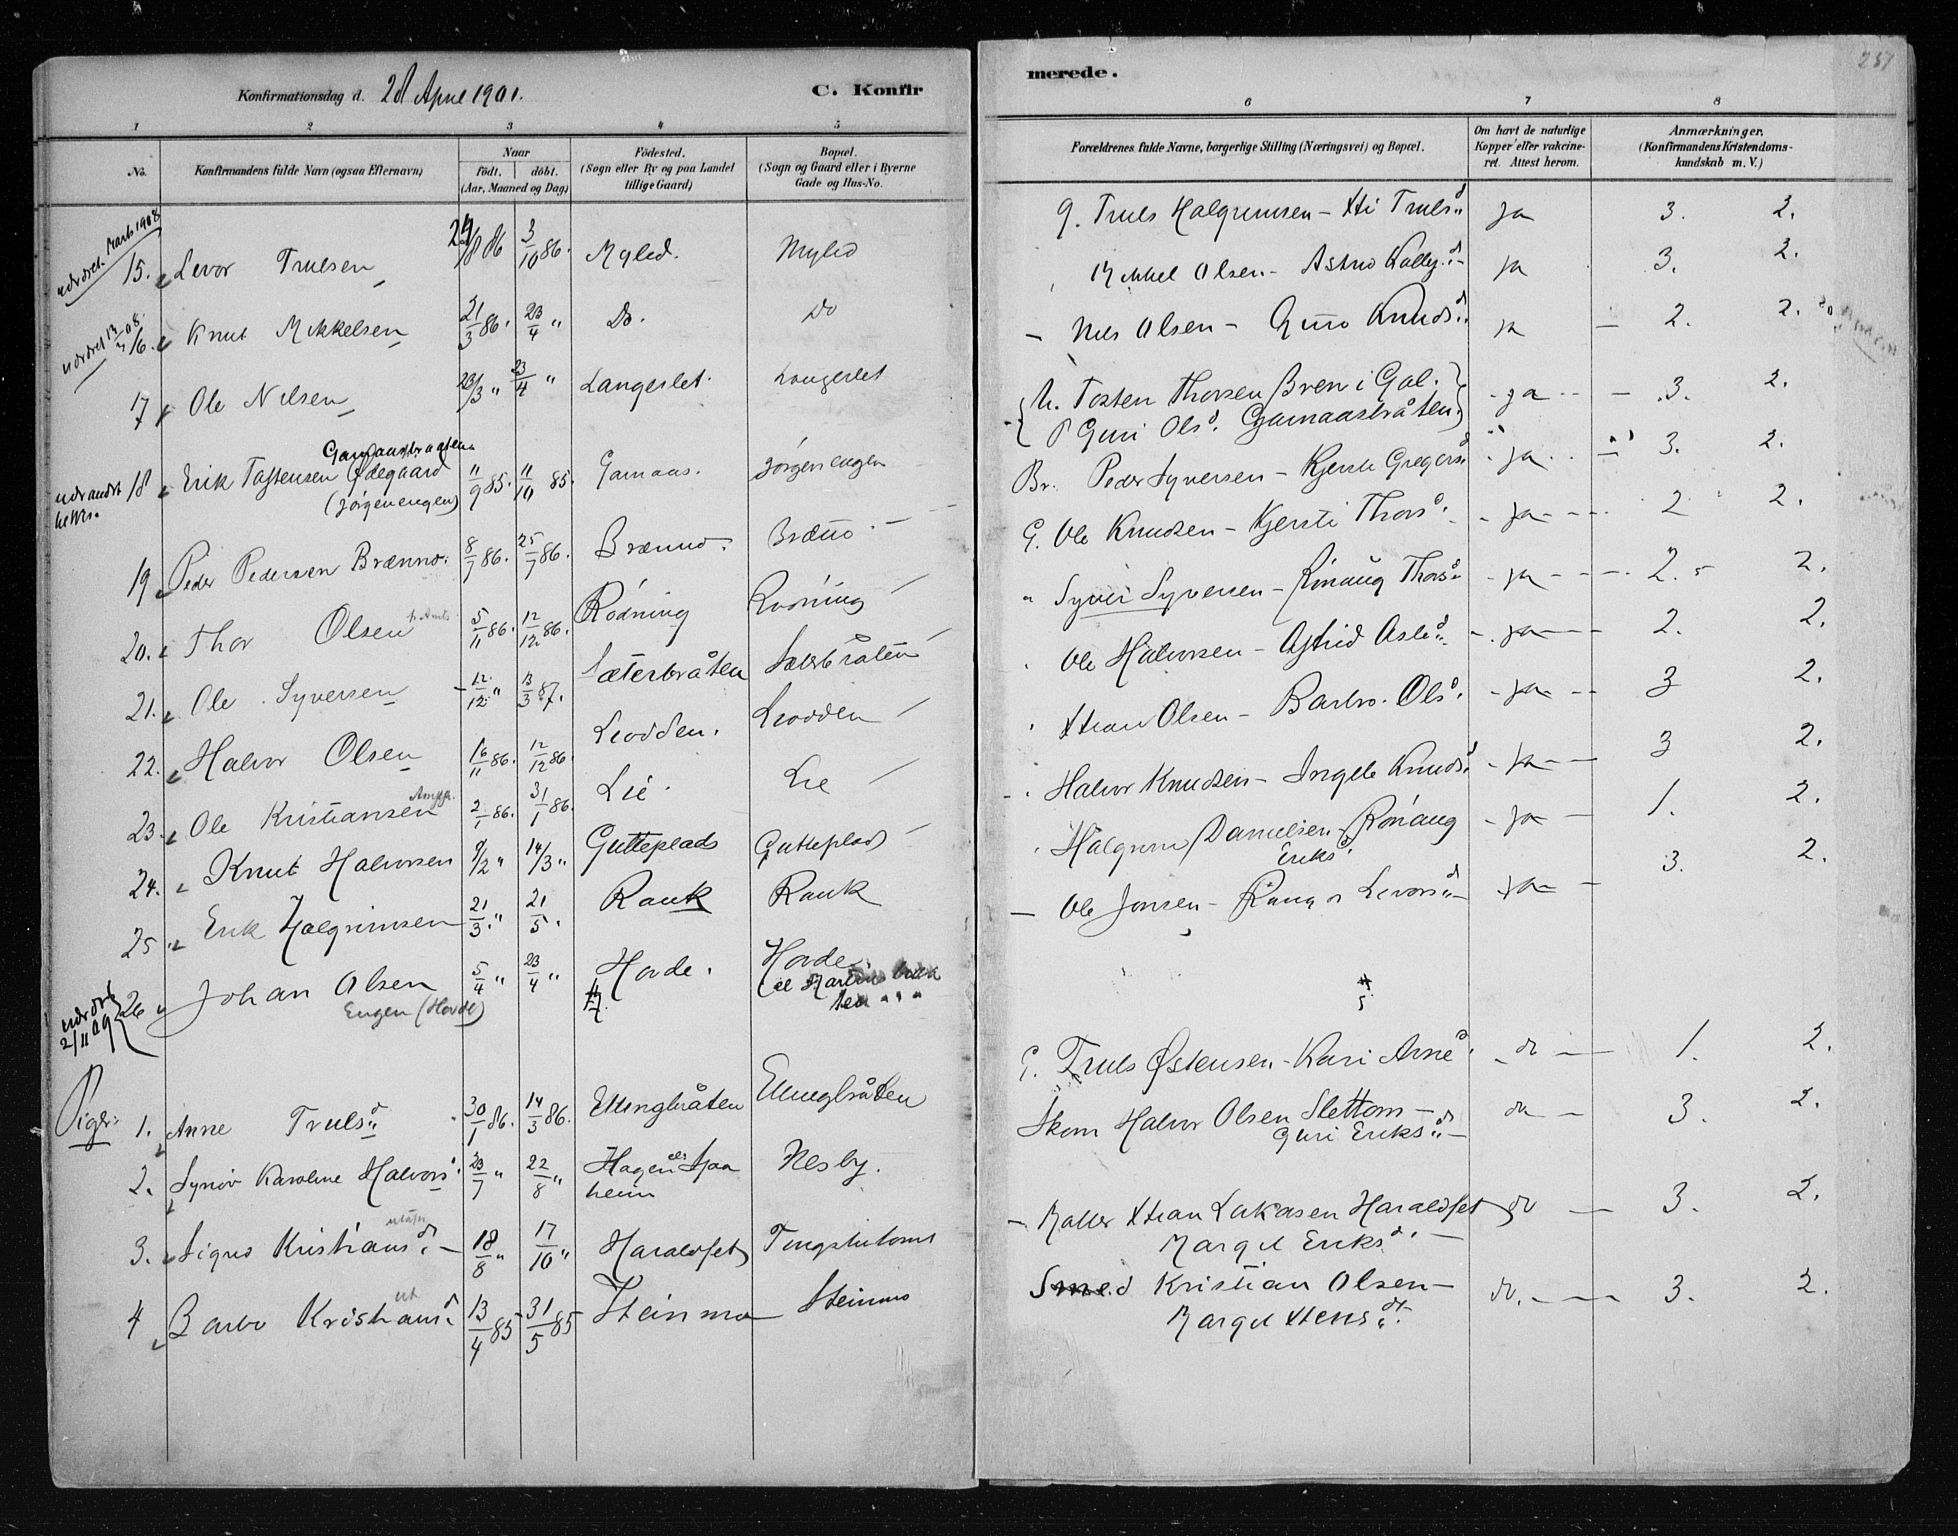 Konfirmationsdag d. 28 April 1901. C. Konfir
1 2 3 4 5
No. Konfirmandens fulde Navn (ogsaa Efternavn) Naar födt. döbt. (Aar, Maaned og Dag) Födested. (Sogn eller By og paa Landet tillige Gaard) Bopæl. (Sogn og Gaard eller i Byerne Gade og Hus-No.
udvdret. Marts 1908
15. Levor Trulsen 24/8 86 3/10 86. Myled. Myled
udvdret 13/3 08.
16. Knut Mikkelsen 21/3 86. 23/4 " Do. Do
17 Ole Nilsen 23/3 " 23/4 " Langeslet. Langeslet
Gamaasbraaten
18 Erik Tostensen Ødegaard 11/9 85. 11/10 85. Gamaas. Jørgenengen
(Jørgenengen)
19 Peder Pedersen Brænno. 8/7 86. 25/7 86. Brænno. Brænno
20. Thor Olsen 5/11 86. 12/12 86. Rødning Rødning
21. Ole Syversen 12/12 " 13/3 87. Sæterbråten Sæterbråten
22. Halvor Olsen 16/11 86. 12/12 86. Lrodden. Lrodden
23. Ole Kristiansen 2/1 86. 31/1 86. Lie. Lie
24. Knut Halvorsen 9/2 " 14/3 " Gutteplads Gutteplads
25. Erik Halgrimsen 21/3 " 21/5. Rauk Rauk
26 Johan Olsen 5/4 " 23/4 " Horde. Horde.
Engen (Horde)
udvdret
2/11 09
Piger:
1. Anne Trulsd 30/1 86. 14/3 86. Ellingbråten Ellingbråten
2. Synøv Karoline Halvorsd 23/7 " 22/8 " Hagen Sjaa Nesby.
heim
3. Sigrid Kristiansd. 18/8 " 17/10 " Haraldset Tingstutomt
4 Barbo Kristiansd. 13/4 85 31/5 85 Steinmo Steinmo
merede. 257
6 7 8
Forældrenes fulde Navne, borgerlige Stilling (Næringsvei) og Bopæl. Om havt de naturlige Kopper eller vakcineret. Attest herom. Anmærkninger. (Konfirmandens Kristendomskundskab m. V.)
G. Truls Halgrimsen - Kti Trulsd ja 3. 2.
Mikkel Olsen - Astrid Halby.d ja 3. 2.
- Nils Olsen - Guro Knudsd ja - 2. 2.
U. Tosten Thorsen Bren i Gol.
P Guri Olsd. Gamaasbråten. ja - 3. 2.
Br. Peder Syversen - Kjersti Gregersd ja 3. 2.
G. Ole Knudsen - Kjersti Thorsd. ja 2 2.
" Syver Syversen - Rönaug Thorsd ja 2. 2.
Ole Halvorsen - Astrid Aslesd ja 2. 2.
Xtian Olsen - Barbro Olsd. ja 3 2.
Halvor Knudsen - Ingeb Knudsd ja 3 2.
Halgrim Danielsen Rönaug ja 1. 2.
Eriksd
- Ole Jonsen - Rang Levorsd ja 3. 2.
G. Truls Østensen - Kari Arned do 1. 2.
Skom Halvor Olsen Slettom - do 3. 2.
Guri Eriksd.
- Maler Xtian Lukasen Haraldset do 3. 2.
Margit Eriksd.
Smed Kristian Olsen - do. 3. 2.
Margit Stensd.